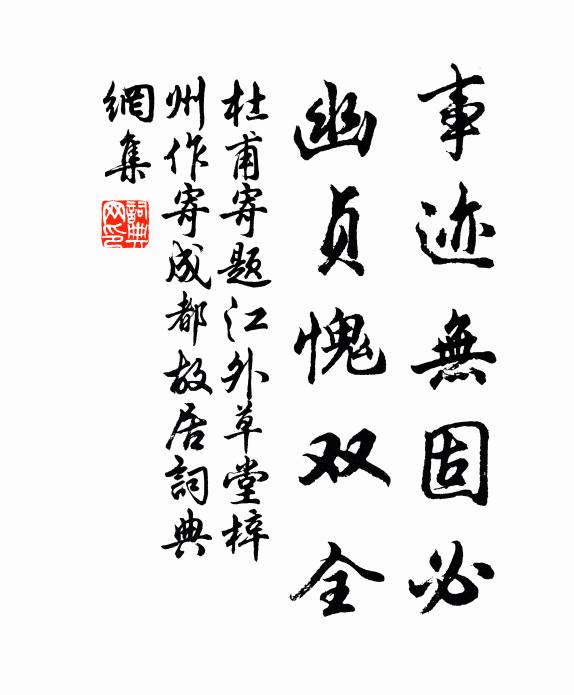 事迹無固必
幽貞愧双全
杜甫寄題江外草堂梓
州作寄成都故居詞典
網集
詞典
网印